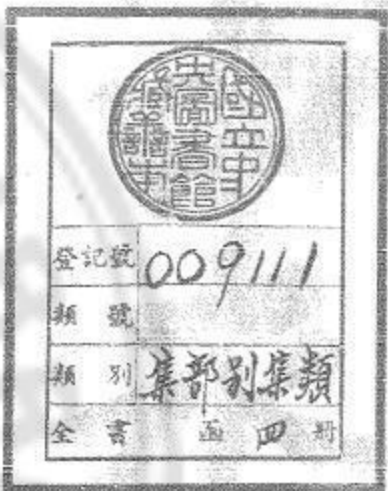 國立中
央圖書館
登記號 009111
類 號
類 別 集部別集類
全 書 函 四 冊